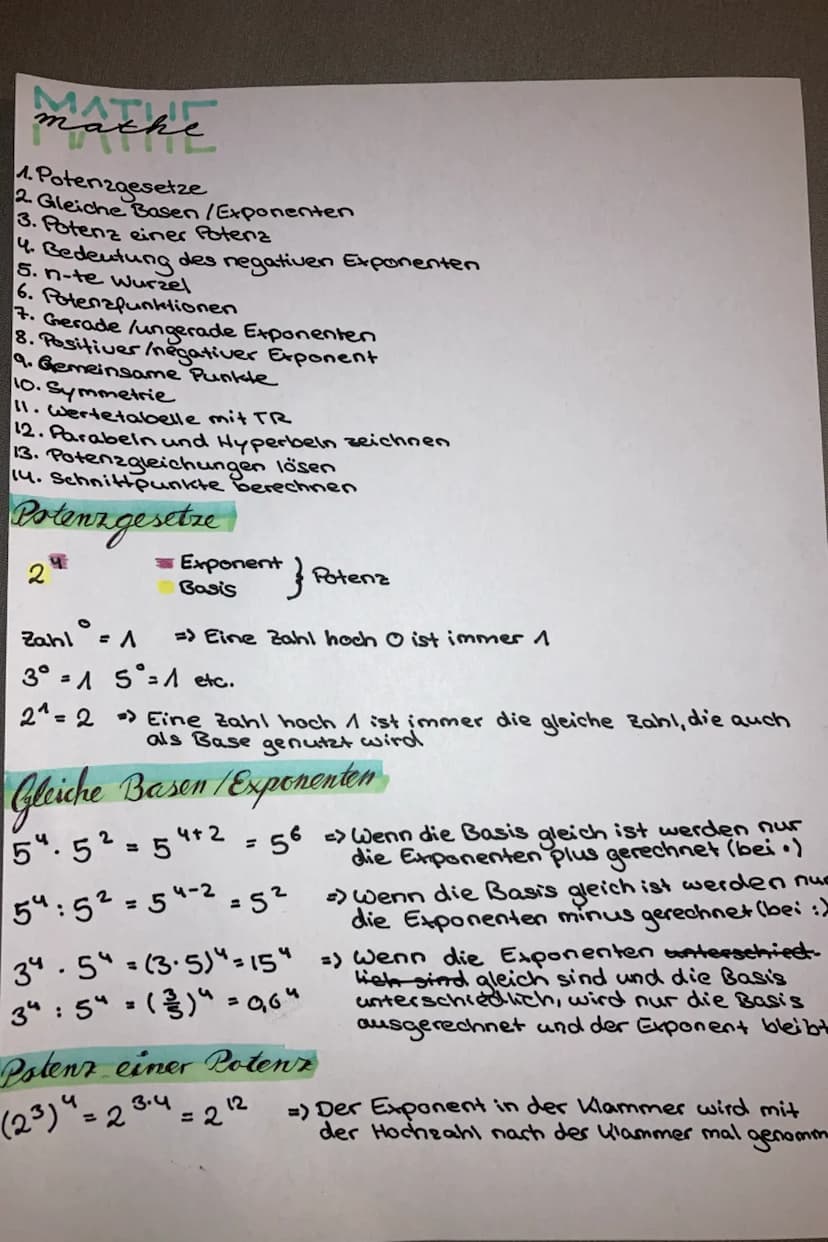 MATHE
mathe
1. Potenzgesetze
2. Gleiche Basen / Exponenten
3. Potenz einer Potenz
4. Bedeutung des negativen Exponenten
5. n-te Wurzel
6. Potenzfunktionen
7. Gerade /ungerade Exponenten
8. Positiver /negativer Exponent
9. Gemeinsame Punkte
10. Symmetrie
11. Wertetabelle mit TR
12. Parabeln und Hyperbeln zeichnen
13. Potenzgleichungen lösen
14. Schnittpunkte berechnen
Potenzgesetze
2⁴ Exponent } Potenz
Basis
Zahl⁰ = 1 => Eine Zahl hoch 0 ist immer 1
3⁰ = 1 5⁰ = 1 etc.
2¹ = 2 => Eine Zahl hoch 1 ist immer die gleiche Zahl, die auch
als Base genutzt wird
Gleiche Basen / Exponenten
5⁴ · 5² = 5⁴⁺² = 5⁶ => Wenn die Basis gleich ist werden nur
die Exponenten plus gerechnet (bei •)
5⁴ : 5² = 5⁴⁻² = 5² => Wenn die Basis gleich ist werden nur
die Exponenten minus gerechnet (bei :)
3⁴ · 5⁴ = (3·5)⁴ = 15⁴ => Wenn die Exponenten unterschied-
lich sind gleich sind und die Basis
3⁴ : 5⁴ = (3/5)⁴ = 0,6⁴ unterschiedlich, wird nur die Basis
ausgerechnet und der Exponent bleibt
Potenz einer Potenz
(2³)⁴ = 2³·⁴ = 2¹² => Der Exponent in der Klammer wird mit
der Hochzahl nach der Klammer mal genomm